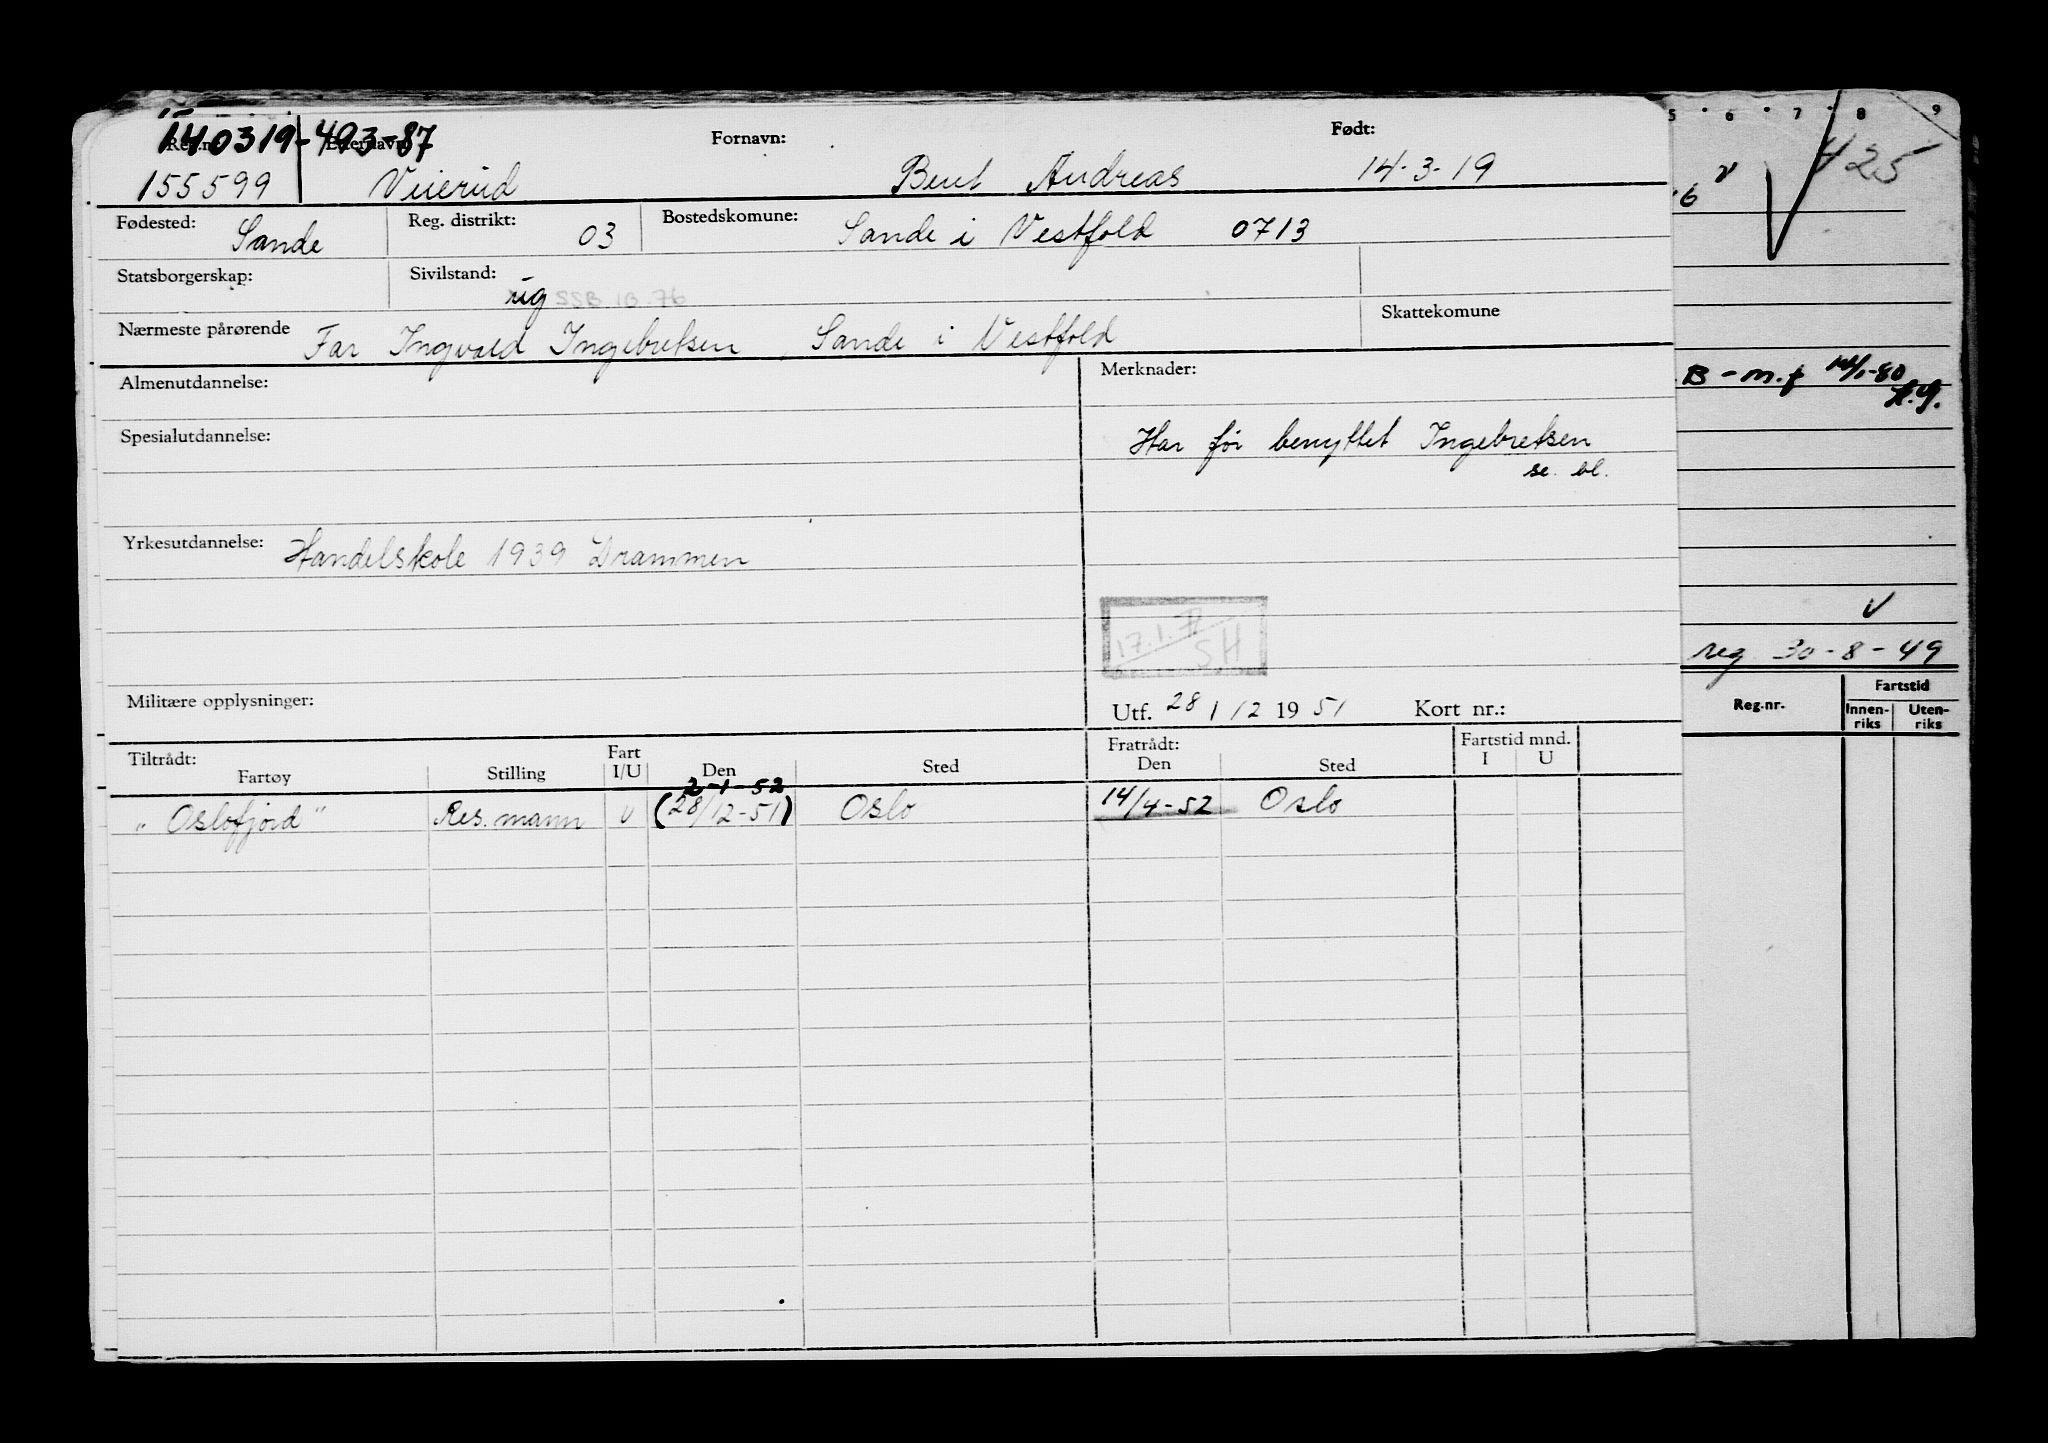 140319-493-87
Reg.nr. Etternavn: Fornavn: Født:
155599 Veierud Bent Andreas 14-3-19
Fødested: Sande Reg. distrikt: 03 Bostedskomune: Sande i Vestfold 0713
Statsborgerskap: Sivilstand: ug SSB 1B.76
Nærmeste pårørende Far Ingvald Ingebretsen, Sande i Vestfold Skattekomune
Almenutdannelse: Merknader:
Spesialutdannelse: Har før benyttet Ingebretsen
se. bl.
Yrkesutdannelse: Handelskole 1939 Drammen
17.1.77
SH
Militære opplysninger: Utf. 28 / 12 19 51 Kort nr.:
Tiltrådt: Fart Fratrådt: Fartstid mnd.
Fartøy Stilling I/U Den Sted Den Sted I U
2-1-52
"Oslofjord" Res. mann U (28/12-51) Oslo 14/4-52 Oslo
5 6 7 8 9
425
6 v
B - m.f 14/1-80
H.G.
v
reg 30-8-49
Reg.nr. Fartstid
Innen-
riks Uten-
riks